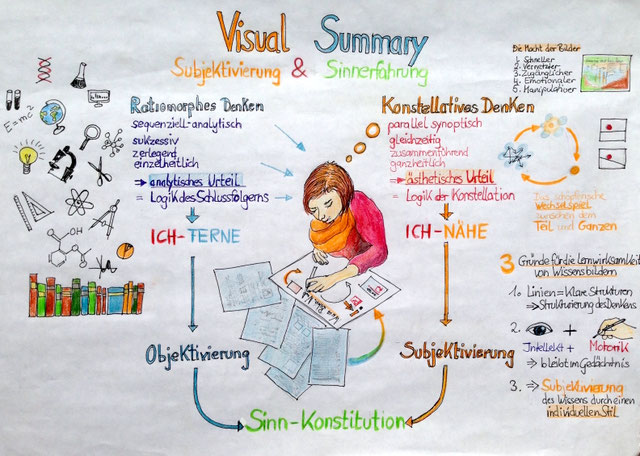 Visual Summary
Subjektivierung & Sinnerfahrung
Die Macht der Bilder
1. Schneller
2. Vernetzter
3. Zugänglicher
4. Emotionaler
5. Manipulativer
E=mc²
Ratiomorphes Denken
sequenziell-analytisch
sukzessiv
zerlegend
einzelheitlich
⇒ analytisches Urteil
= Logik des Schlussfolgerns
ICH-TERNE
Objektivierung
Konstellatives Denken
parallel synoptisch
gleichzeitig
zusammenführend
ganzheitlich
⇒ ästhetisches Urteil
= Logik der Konstellation
ICH-NÄHE
Subjektivierung
Sinn-Konstitution
Wechselspiel
zwischen dem
Teil und Ganzen
3 Gründe für die Lernwirksamkeit
von Wissensbildern
1. Linien = Klare Strukturen
⇒ Strukturierung des Denkens
2. +
Intellekt + Motorik
⇒ bleibt im Gedächtnis
3. ⇒ Subjektivierung
des Wissens durch einen
individuellen Stil